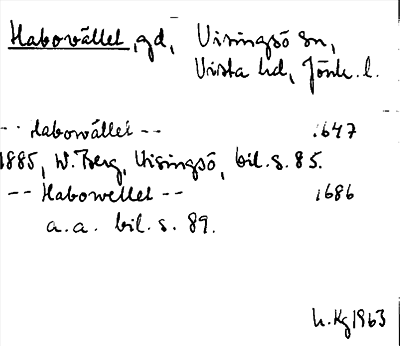 Habovället, gd, Visingsö sn,
Vista hd, Jönk. l.
-- Habowället -- 1647
1885, W. Berg, Visingsö, bil. s. 85.
-- Habowellet -- 1686
a.a. bil. s. 89.
h. Kg 1963